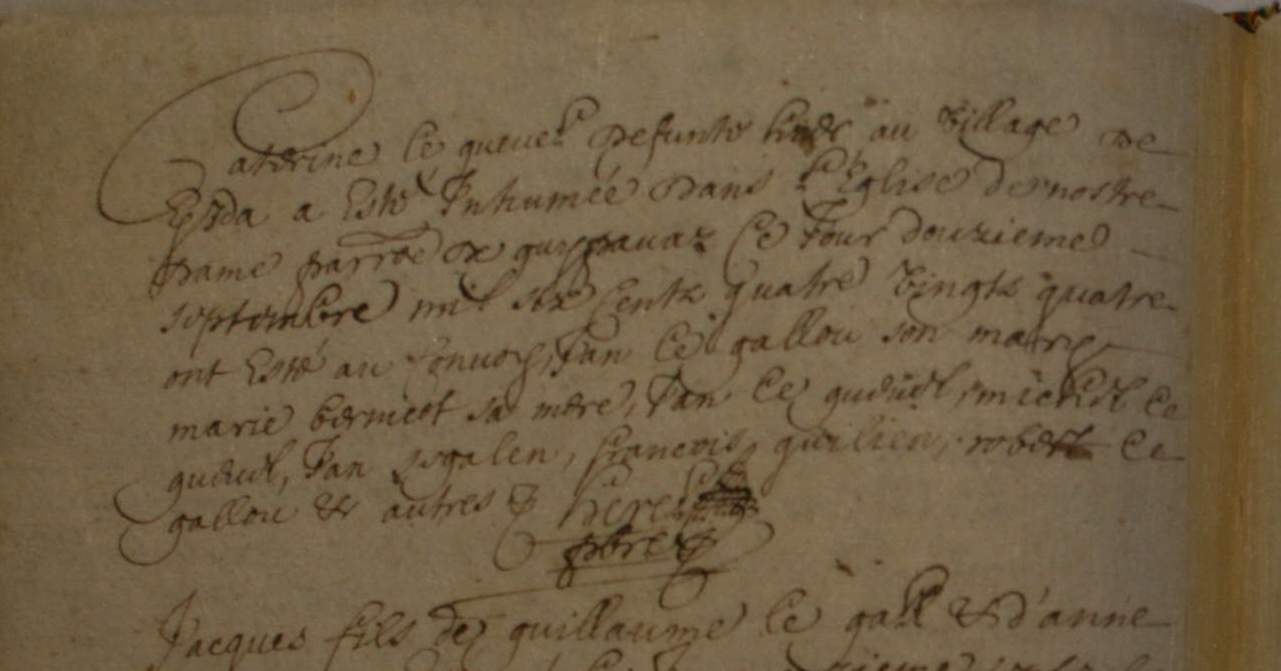 Caterine le queuel defunte hier au village de
a Esté Inhumée dans l'Eglise de nostre
Dame parrőe de guipavaz le Jour douzieme
septembre mil six cents quatre vingts quatre
ont Esté au Convoy, Jan le gallou son mary
marie bernicot sa mere, Jan le queuel, michel le
queuel, Jan segalen, francois guilien, robert le
gallou & autres
pbre
Jacques fils de guillaume le gall & d'anne